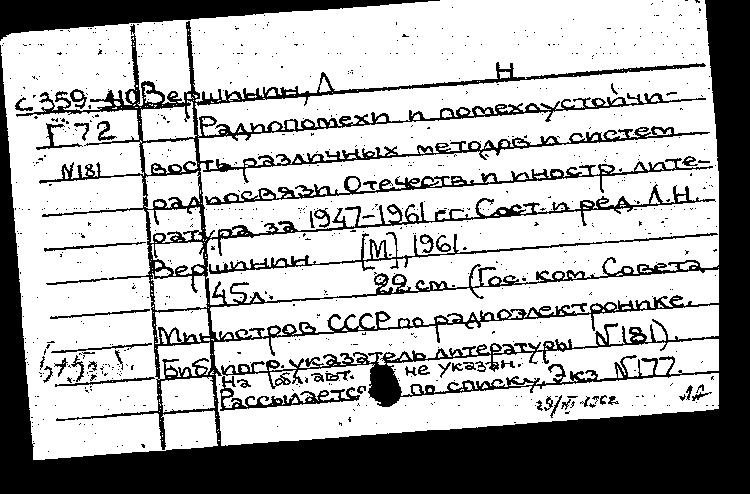 С 359-110 Вершинин, Л Н
Г 72 Радиопомехи и помехоустойчи-
N181 вость различных методов и систем
радиосвязи. Отечеств. и иностр. лите-
ратура за 1947-1961 гг. Сост. и ред. Л.Н.
Вершинин. [М], 1961.
45л. 22 см. (Гос. ком. Совета
Министров СССР по радиоэлектронике.
Библиогр. указатель литературы N181).
На обл. авт. не указан.
Рассылается по списку. Экз N177.